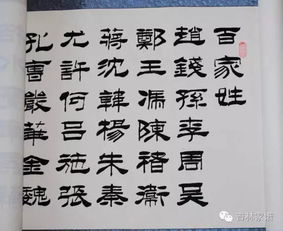 百家姓
趙錢孫李周吳
鄭王馮陳褚衞
蔣沈韓楊朱秦
尤許何吕施張
孔曹嚴華金魏